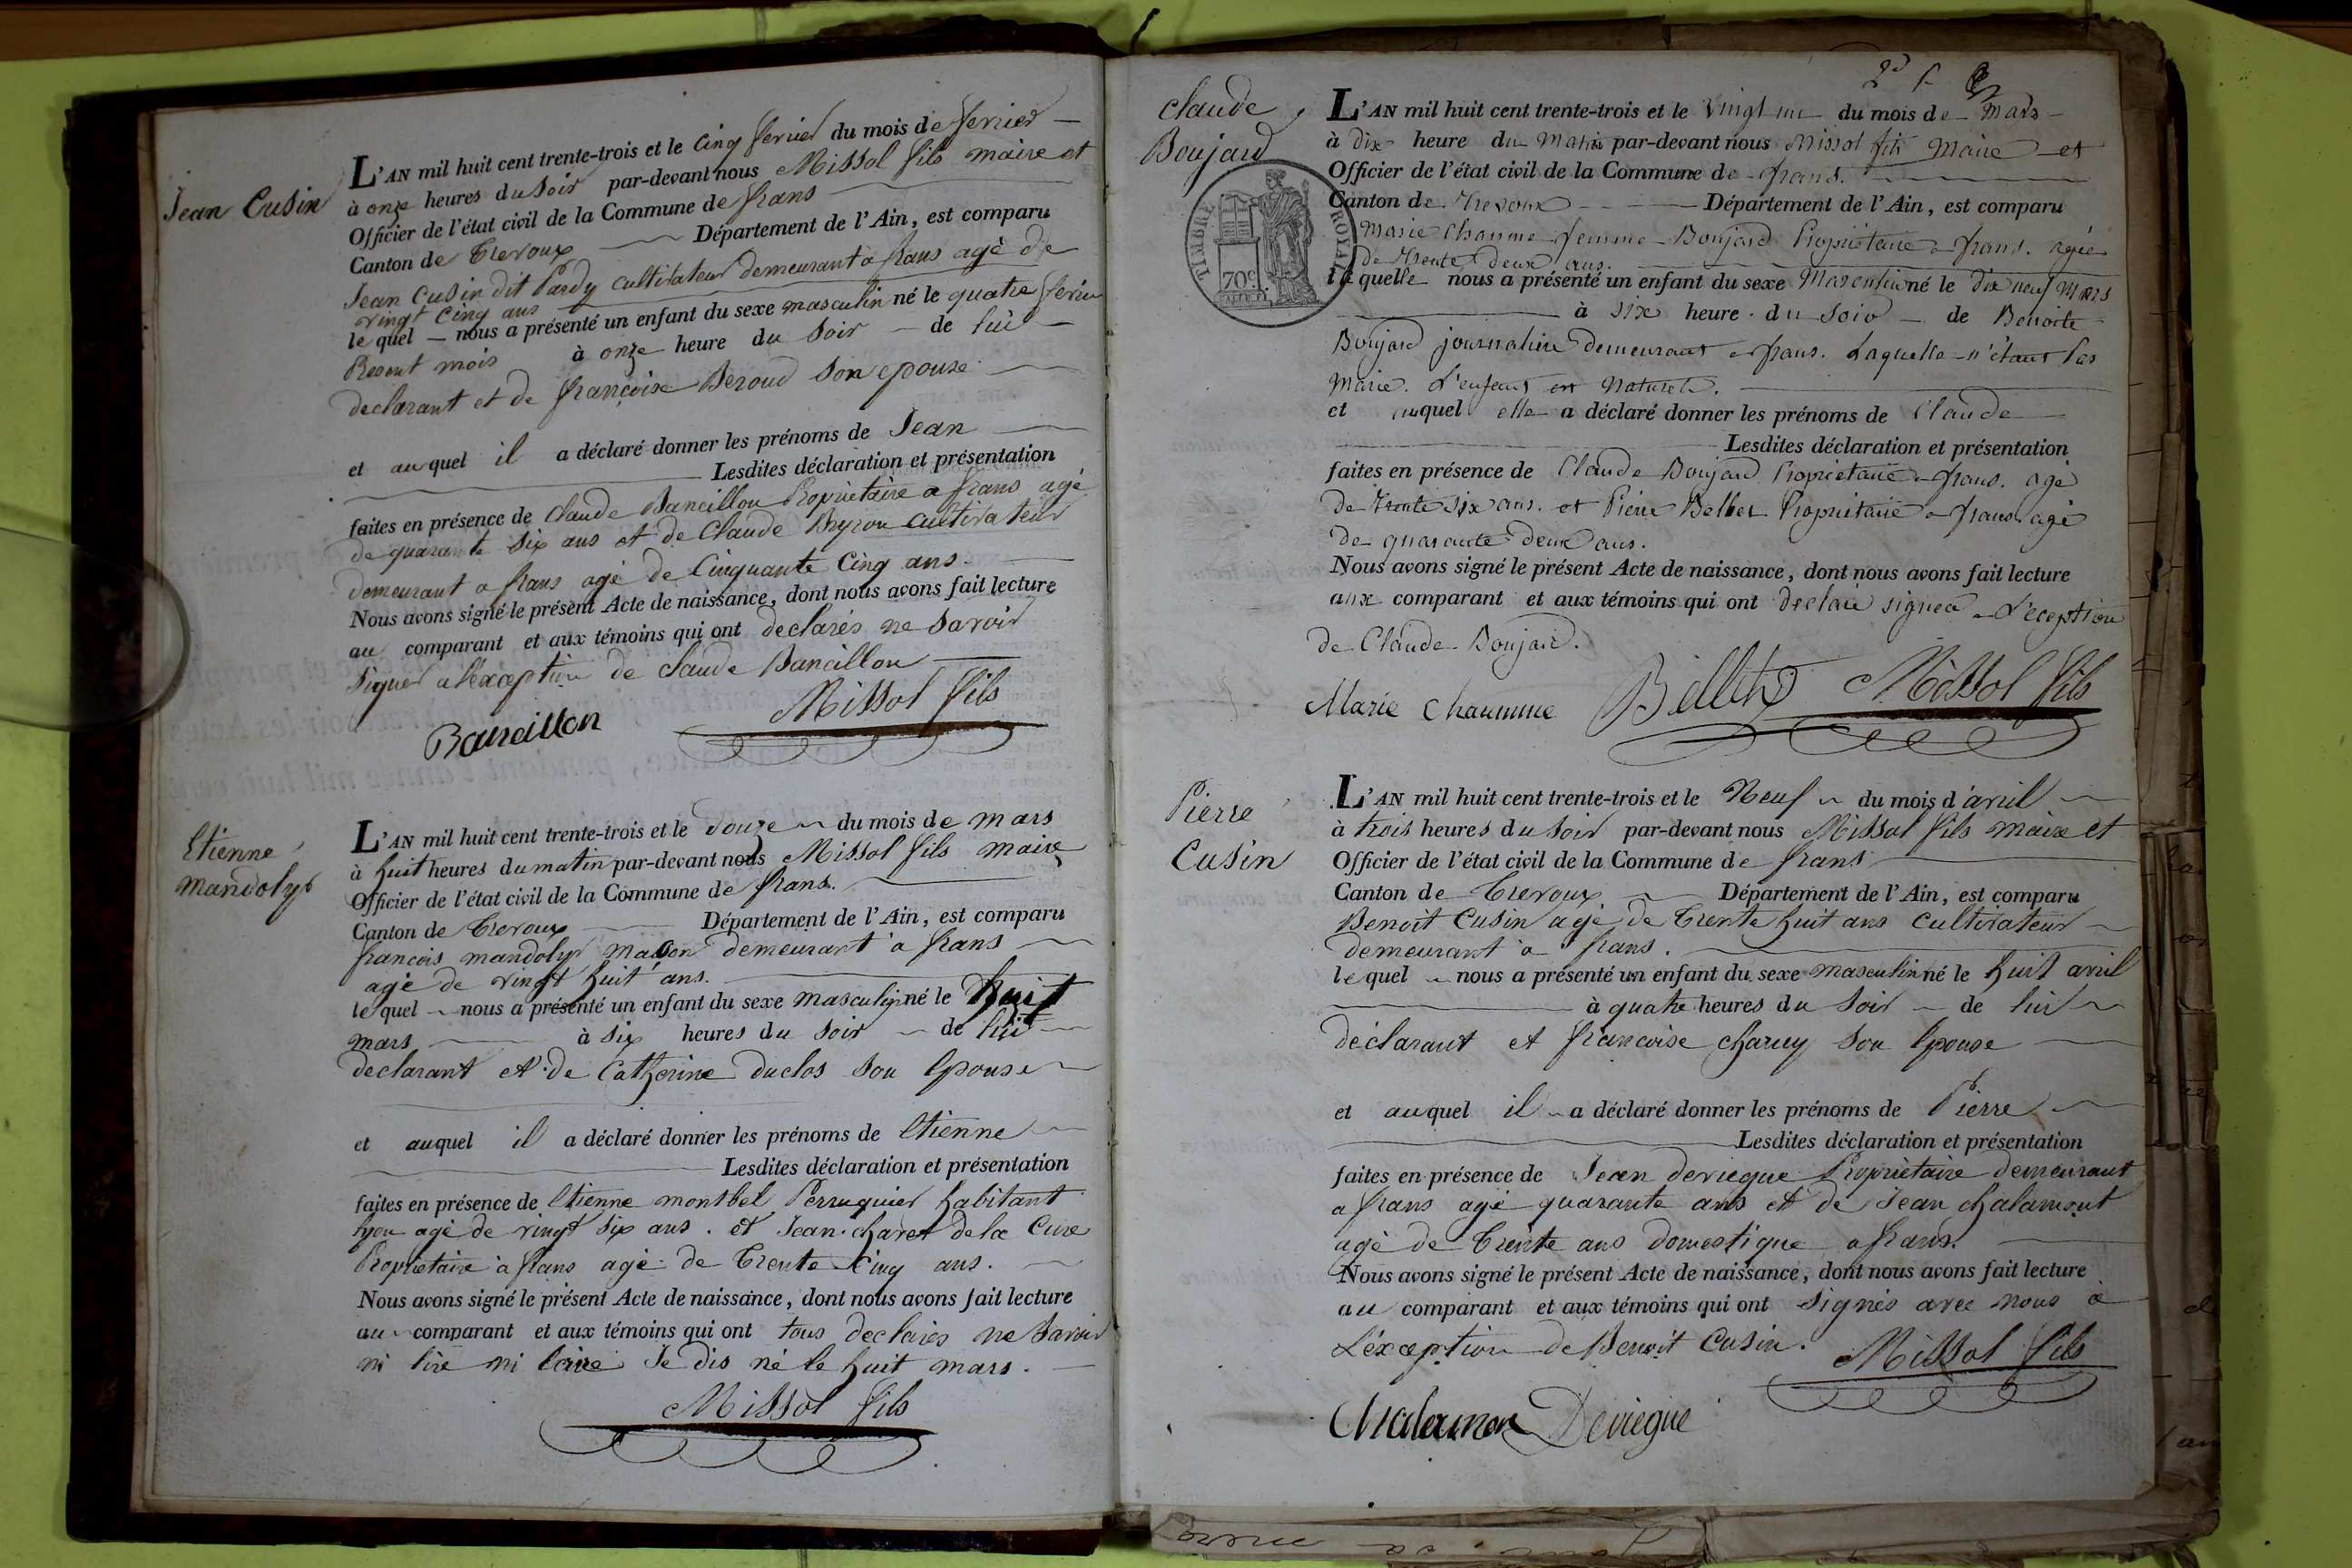 Jean Cusin
L'AN mil huit cent trente-trois et le cinq fevrier du mois de fevrier
à onze heures du soir par-devant nous Missol fils maire et
Officier de l'état civil de la Commune de frans
Canton de Trevoux Département de l'Ain, est comparu
Jean Cusin dit Pardy cultivateur demeurant a frans agé de
vingt cinq ans
lequel nous a présenté un enfant du sexe masculin né le quatre fevrier
Present mois à onze heure du soir de lui
declarant et de françoise Beroud son epouse
et auquel il a déclaré donner les prénoms de Jean
Lesdites déclaration et présentation
faites en présence de Claude Bancillon Propriétaire a frans agé
de quarante six ans et de Claude Buyron cultivateur
demeurant a frans agé de Cinquante Cinq ans.
Nous avons signé le présent Acte de naissance, dont nous avons fait lecture
au comparant et aux témoins qui ont declarés ne savoir
signer a l'exception de claude Bancillon
Bancillon Missol fils
Etienne
mandolyt
L'AN mil huit cent trente-trois et le douze du mois de mars
à huit heures du matin par-devant nous Missol fils maire
Officier de l'état civil de la Commune de frans.
Canton de Trevoux Département de l'Ain, est comparu
francois mandolyt maçon demeurant a frans
agé de vingt huit ans.
lequel nous a présenté un enfant du sexe masculin né le huit
mars à six heures du soir de lui
declarant et de Catherine duclos son Epouse
et auquel il a déclaré donner les prénoms de Etienne
Lesdites déclaration et présentation
faites en présence de Etienne montbel Perruquier habitant
lyon agé de vingt six ans. et Jean charet de la Cure
Propriétaire à frans agé de Trente Cinq ans.
Nous avons signé le présent Acte de naissance, dont nous avons fait lecture
au comparant et aux témoins qui ont tous declarés ne Savoir
ni lire ni Ecrire Je dis né le huit mars.
Missol fils
2d f
claude
Boujard
TIMBRE ROYAL
70c
L'AN mil huit cent trente-trois et le vingt un du mois de mars
à dix heure du matin par-devant nous Missol fils Maire et
Officier de l'état civil de la Commune de frans.
Canton de Trevoux Département de l'Ain, est comparu
Marie Chaumme femme Boujard Propriétaire a frans. agée
de Trente deux ans.
laquelle nous a présenté un enfant du sexe Masculin né le dix neuf mars
à six heure du soir de Benoite
Boujard journalière demeurant a frans. Laquelle n'étant Pas
marié. L'enfant est naturel.
et auquel elle a déclaré donner les prénoms de Claude
Lesdites déclaration et présentation
faites en présence de Claude Boujard Propriétaire a frans. agé
de Trente six ans. et Pierre Belbet Propriétaire a frans agé
de quarante deux ans.
Nous avons signé le présent Acte de naissance, dont nous avons fait lecture
aux comparant et aux témoins qui ont declaré signer a L'eception
de Claude Boujard.
Marie Chaumme Missol fils
Pierre
Cusin
L'AN mil huit cent trente-trois et le Neuf du mois d'avril
à trois heures du soir par-devant nous Missol fils maire et
Officier de l'état civil de la Commune de frans
Canton de Trevoux Département de l'Ain, est comparu
Benoit Cusin agé de Trente huit ans cultivateur
demeurant a frans.
lequel nous a présenté un enfant du sexe masculin né le huit avril
à quatre heures du soir de lui
déclarant et françoise charvy son Epouse
et auquel il a déclaré donner les prénoms de Pierre
Lesdites déclaration et présentation
faites en présence de Jean deviegue Propriétaire demeurant
a frans agé quarante ans et de Jean chalamont
agé de Trente ans domestique a frans.
Nous avons signé le présent Acte de naissance, dont nous avons fait lecture
au comparant et aux témoins qui ont signés avec nous à
L'éxception de Benoit Cusin. Missol fils
Chalamon Deviegue